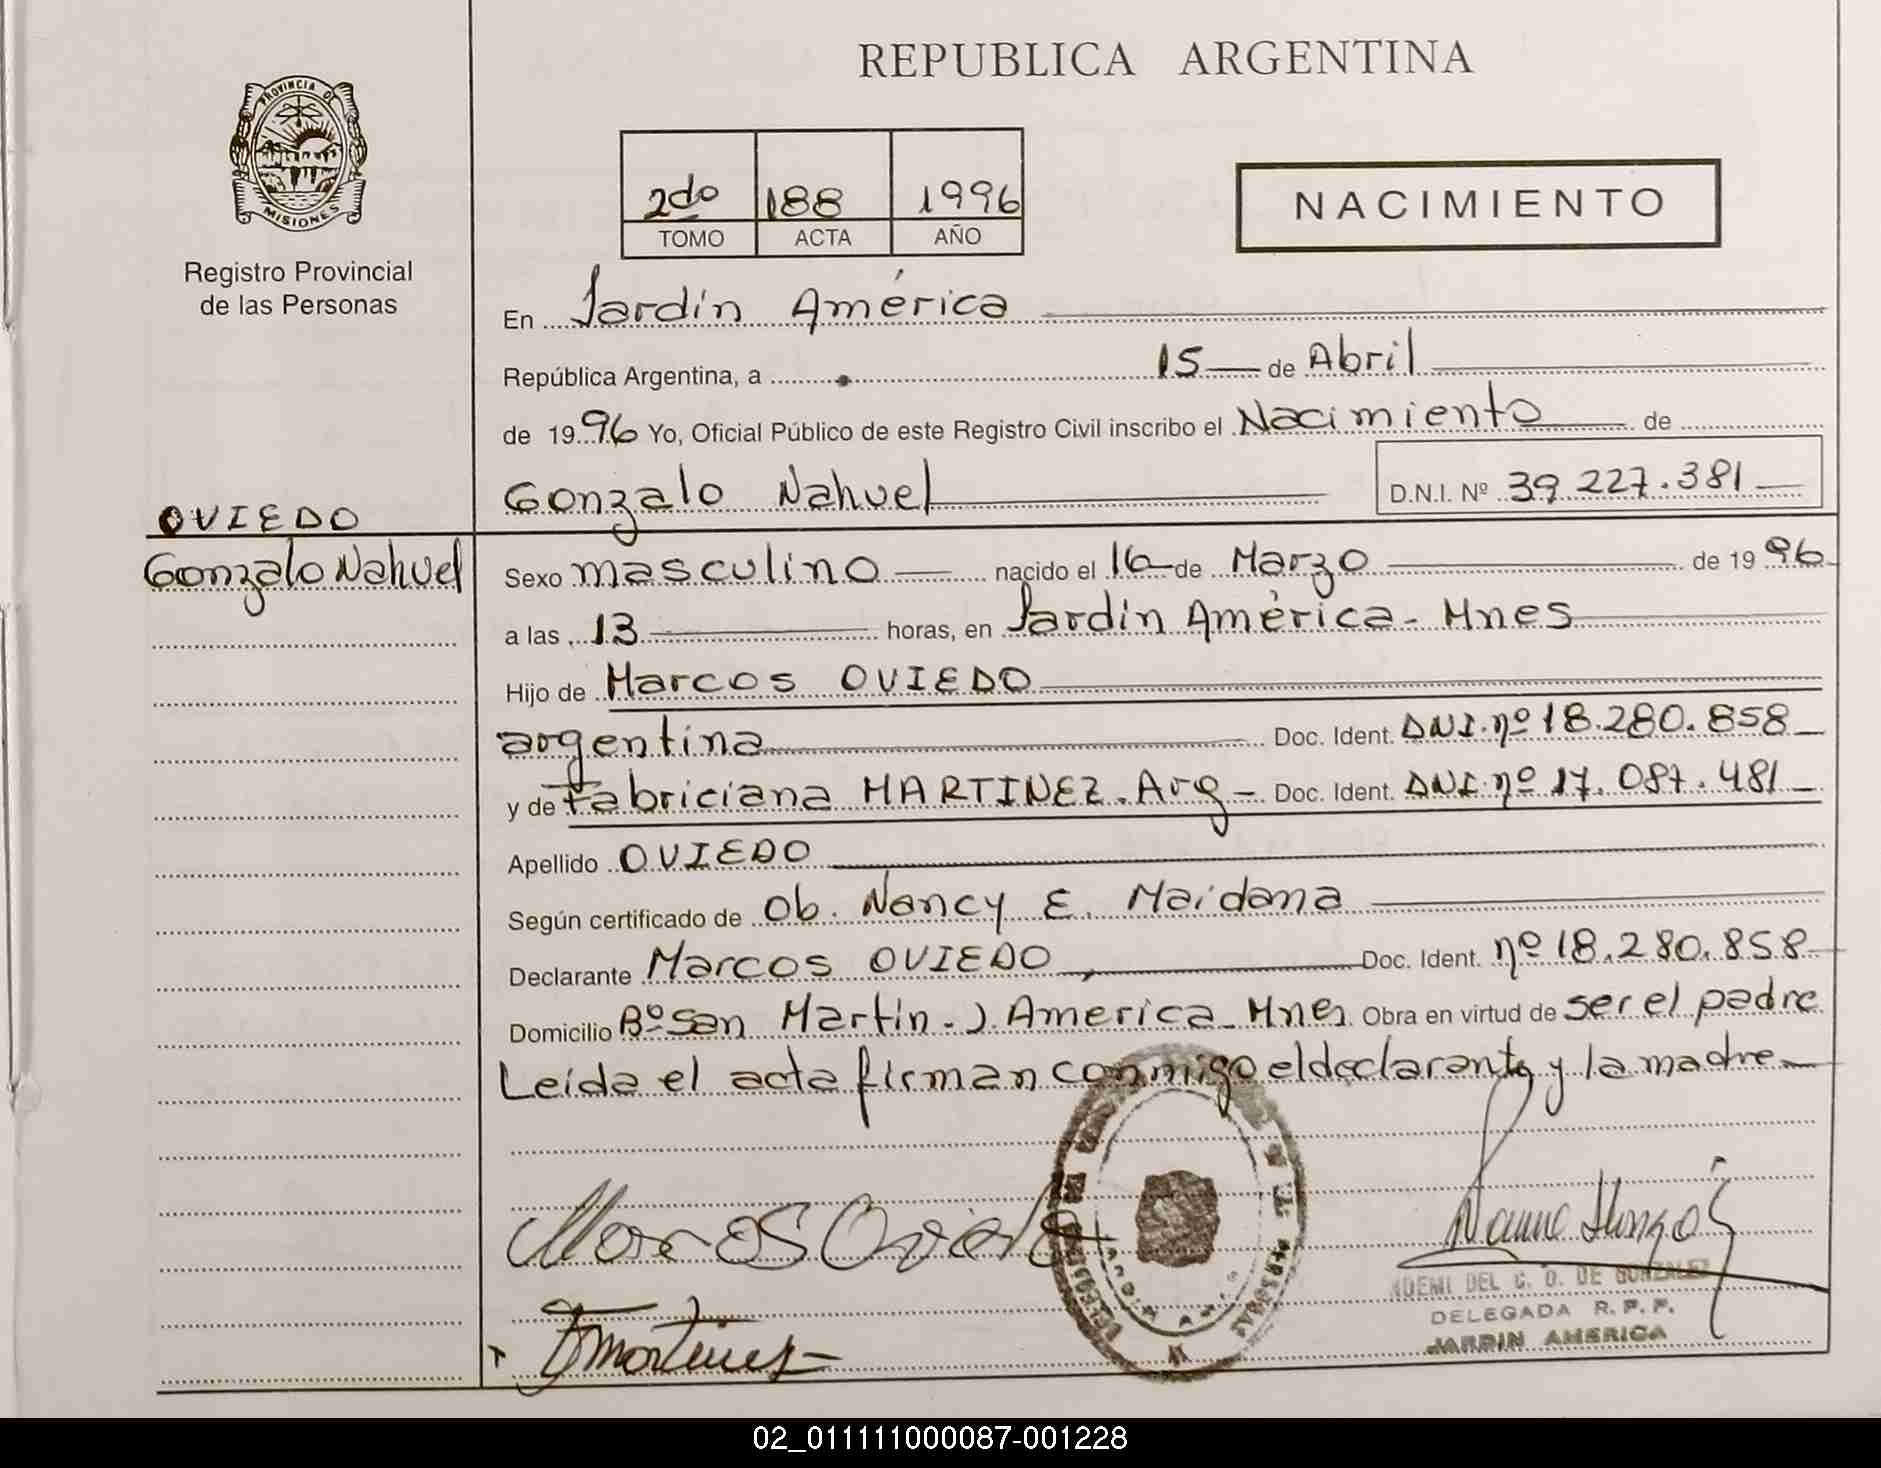 REPUBLICA ARGENTINA
PROVINCIA DE
MISIONES
Registro Provincial
de las Personas
2do 188 1996
TOMO ACTA AÑO
NACIMIENTO
En Jardín América
República Argentina, a 15 de Abril
de 1996 Yo, Oficial Público de este Registro Civil inscribo el Nacimiento de
Gonzalo Nahuel D.N.I. Nº 39.227.381
OVIEDO
Gonzalo Nahuel
Sexo masculino nacido el 16 de Marzo de 1996
a las 13 horas, en Jardín América - Mnes
Hijo de Marcos OVIEDO
argentina Doc. Ident. DNI. nº 18.280.858
y de Fabriciana MARTINEZ. Arg - Doc. Ident. DNI. nº 17.087.481
Apellido OVIEDO
Según certificado de Ob. Nancy E. Maidana
Declarante Marcos OVIEDO, Doc. Ident. nº 18.280.858
Domicilio Bº San Martín - J. America - Mnes Obra en virtud de ser el padre
Leída el acta firman conmigo el declarante y la madre
Marcos Oviedo
NOEMI DEL C. O. DE GONZALEZ
DELEGADA R. P. P.
JARDIN AMERICA
F Martinez
02_011111000087-001228